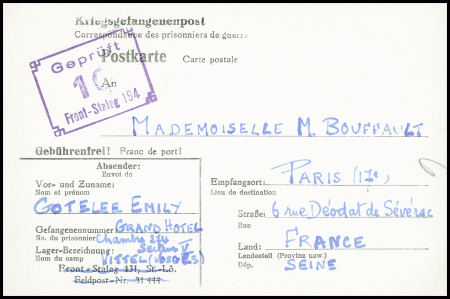 Kriegsgefangenenpost
Correspondance des prisonniers de guerre
Postkarte Carte postale
Geprüft
10
Front-Stalag 194
An
MADEMOISELLE M. BOUFFAULT
Gebührenfrei! Franc de port!
Absender:
Envoi de
Vor- und Zuname:
Nom et prénom
GOTELEE EMILY
Gefangenennummer: GRAND HOTEL
No. du prisonnier Chambre 274
Lager-Bezeichnung: Secteur V
Nom du camp VITTEL (VOSGES)
Front-Stalag 131, St.-Lô.
Feldpost-Nr. 31 444
Empfangsort: PARIS (17e)
Lieu de destination
Straße: 6 rue Déodat de Sévérac
Rue
Land: FRANCE
Landesteil (Provinz usw.)
Dép. SEINE